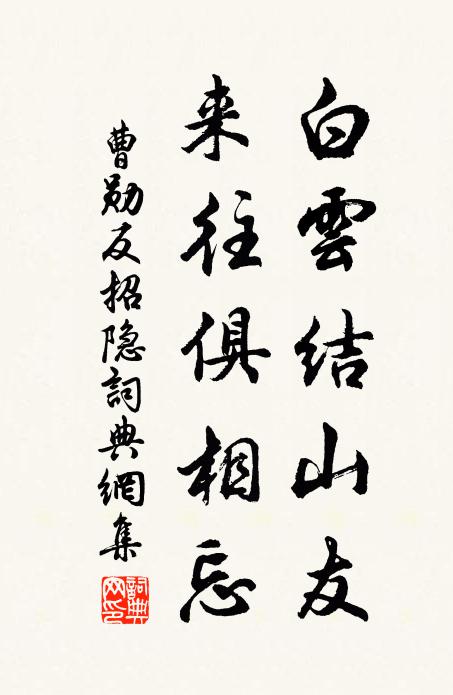 白雲結山友
来往俱相忘
曹勛反招隐詞典網集
詞典網印